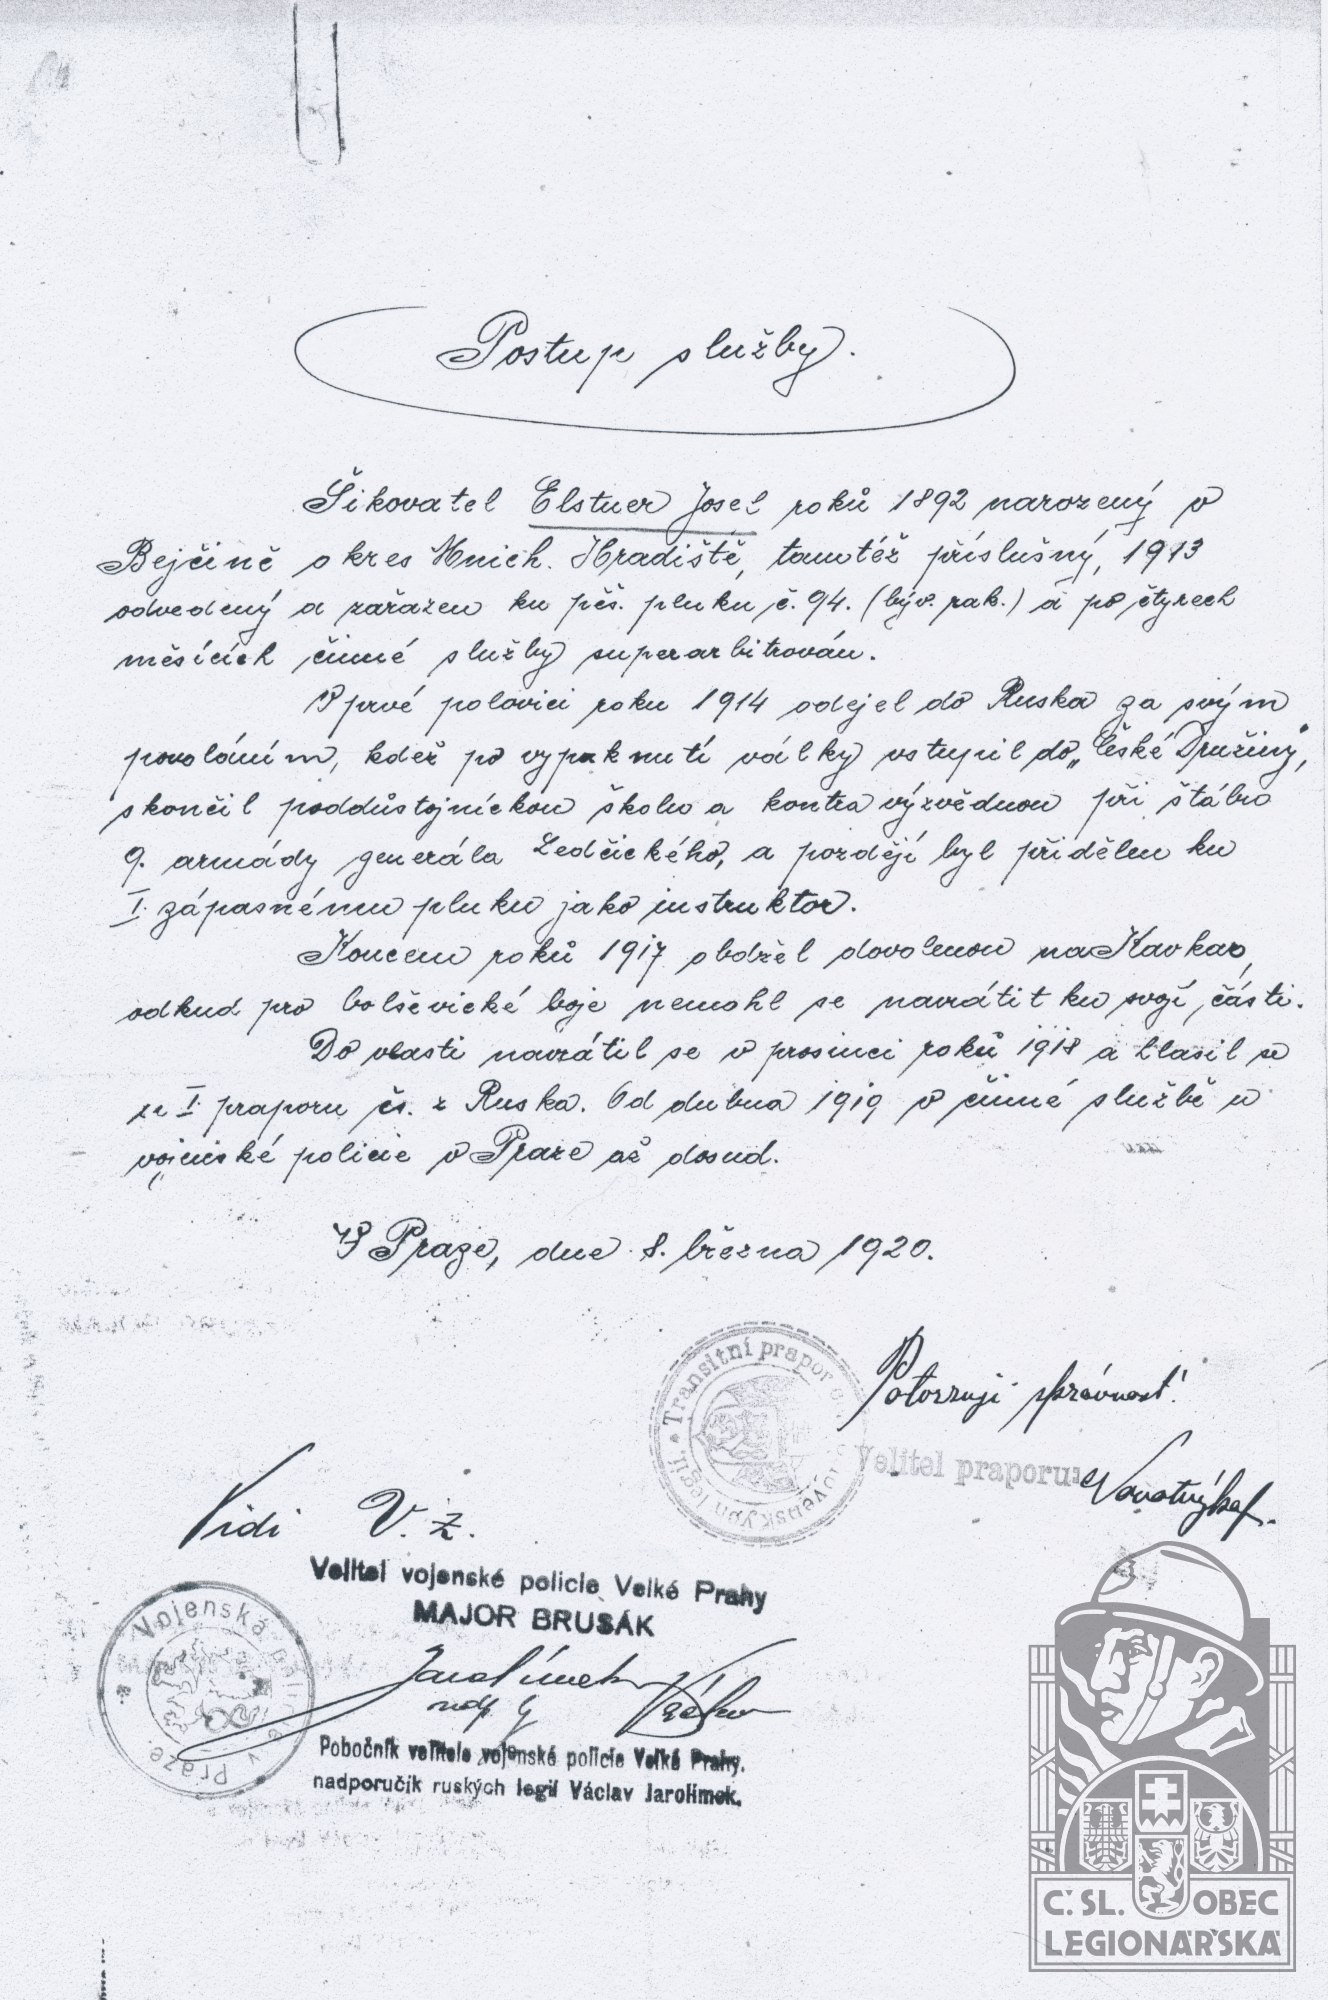 Postup služby.
Šikovatel Elstner Josef roků 1892 narozený v
Bejčině okres Mnich. Hradiště, tamtéž příslušný, 1913
odvedený a zařazen ku pěš. pluku č. 94. (býv. rak.) a po čtyrech
měsících činné služby superarbitrován.
V prvé polovici roku 1914 odejel do Ruska za svým
povoláním, kdež po vypuknutí války vstupil do „České Družiny",
skončil poddůstojnickou školu a kontra výzvědnou při štábu
9. armády generála Ledčického, a pozdějí byl přidělen ku
I. zápasnému pluku jako instruktor.
Koncem roků 1917 obdržel dovolenou na Kavkaz,
odkud pro bolševické boje nemohl se navrátit ku svojí části.
Do vlasti navrátil se v prosinci roků 1918 a hlasil se
u I. praporu čs. z Ruska. Od dubna 1919 v činné službě u
vojenské policie v Praze až dosud.
V Praze, dne 8. března 1920.
Transitní prapor legií.
Potvrzuji správnost!
Velitel praporu:
Vidi V. z.
Velitel vojenské policie Velké Prahy
MAJOR BRUSÁK
Vojenská policie v Praze
Jarolímek Václav
Pobočník velitele vojenské policie Velké Prahy.
nadporučík ruských legií Václav Jarolímek.
Č. SL. OBEC
LEGIONÁŘSKÁ